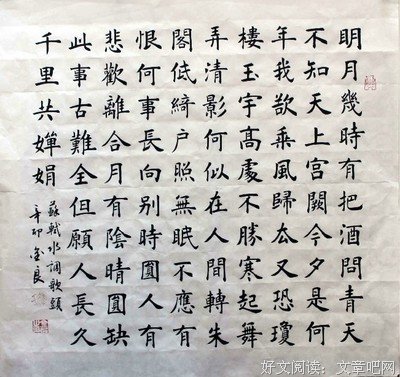 明月幾時有把酒問青天
不知天上宮闕今夕是何
年我欲乘風歸去又恐瓊
樓玉宇高處不勝寒起舞
弄清影何似在人間轉朱
閣低綺户照無眠不應有
恨何事長向别時圓人有
悲歡離合月有陰晴圓缺
此事古難全但願人長久
千里共嬋娟
蘇軾水調歌頭
辛卯
好文阅读：文章吧网